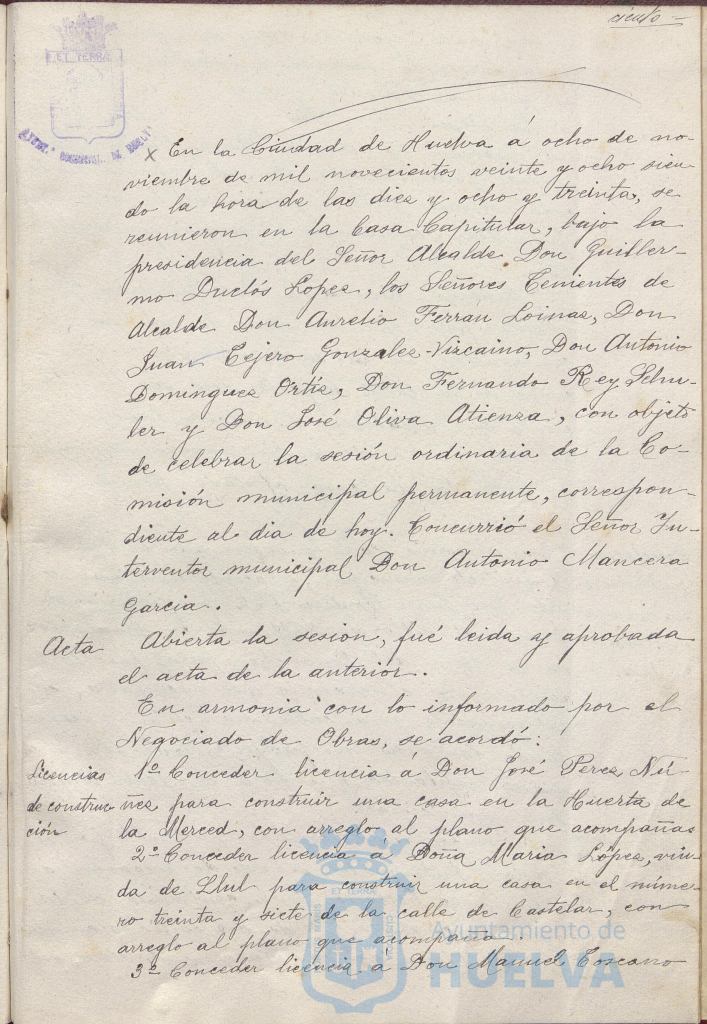 ciento =
ET TERRÆ
En la Ciudad de Huelva á ocho de no-
viembre de mil novecientos veinte y ocho sien-
do la hora de las diez y ocho y treinta, se
reunieron en la Casa Capitular, bajo la
presidencia del Señor Alcalde Don Guiller-
mo Duclós Lopez, los Señores Tenientes de
Alcalde Don Aurelio Ferrán Loinaz, Don
Juan Tejero Gonzalez-Vizcaino, Don Antonio
Dominguez Ortíz, Don Fernando Rey Schu-
ler y Don José Oliva Atienza, con objeto
de celebrar la sesión ordinaria de la Co-
misión municipal permanente, correspon-
diente al dia de hoy. Concurrió el Señor In-
terventor municipal Don Antonio Mancera
Garcia.
Acta Abierta la sesion, fué leida y aprobada
el acta de la anterior.
En armonia con lo informado por el
Negociado de Obras, se acordó:
Licencias 1º Conceder licencia á Don José Perez Nú-
de construc ñez para construir una casa en la Huerta de
ción la Merced, con arreglo al plano que acompaña
2º Conceder licencia á Doña Maria López, viu-
da de Llul para construir una casa en el núme-
ro treinta y siete de la calle de Castelar, con
arreglo al plano que acompaña.
3º Conceder licencia á Don Manuel Toscano
Ayuntamiento de
HUELVA